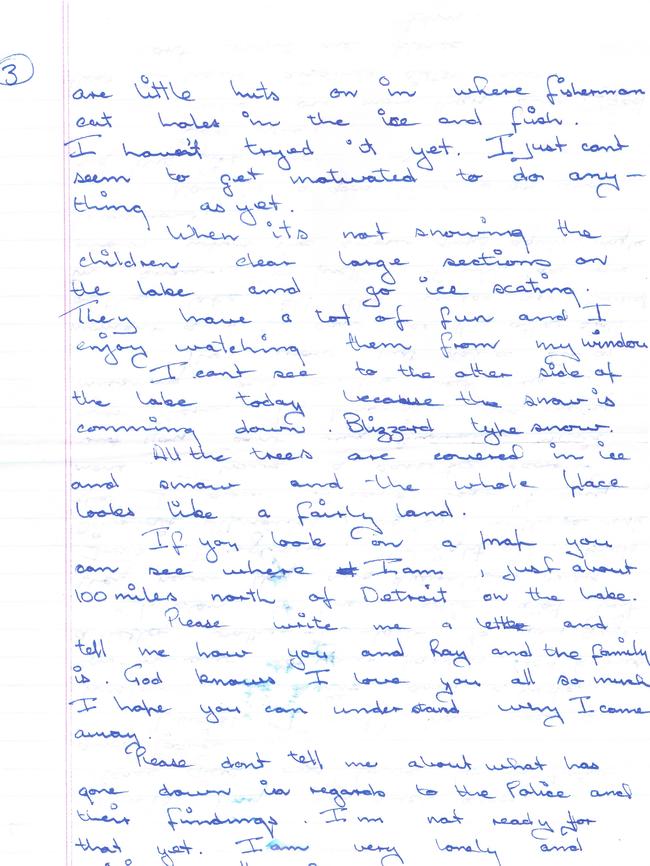 3
are little huts on in where fisherman
cut holes in the ice and fish.
I haven't tryed it yet. I just cant
seem to get motuvated to do any-
thing as yet.
When it's not snowing the
children clear large sections on
the lake and go ice scating.
They have a lot of fun and I
enjoy watching them from my window
I cant see to the other side of
the lake today because the snow is
comming down. Blizzard type snow.
All the trees are covered in ice
and snow and the whole place
looks like a fairly land.
If you look on a map you
can see where I am, just about
100 miles north of Detroit on the lake.
Please write me a letter and
tell me how you and Ray and the family
is. God knows I love you all so much
I hope you can understand why I came
away.
Please dont tell me about what has
gone down in regards to the Police and
their findings. I'm not ready for
that yet. I am very lonely and